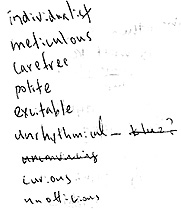 individualist
meticulous
carefree
polite
excitable
unrhythmical – blues?
unconvincing
curious
unofficious